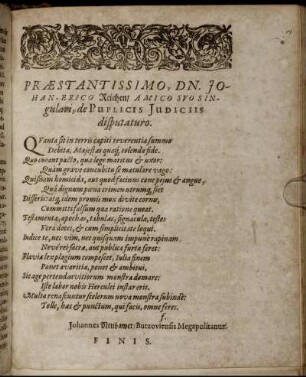 PRÆSTANTISSIMO, DN. JO-
HAN-ERICO Reichen/ AMICO SVO SIN-
gulari, de PUBLICIS JUDICIIS
disputaturo.
QVanta sit in terris capiti reverentia summo
Debita, Majestas quæq́; colenda fide.
Quo coëant pacto, qua lege maritus & uxor:
Quàm grave concubitu se maculare vago:
Quisnam homicida, aut quod facinus
Quâ dignum pœna crimen utrumq́; siet
Disseris: atq́; idem promis mox divite cornu,
Committi falsum qua ratione queat.
Testamenta, apochas, tabulas, signacula, testes
Vera doces, & cum simplicitate legut.
Indice te, nec vim, nec quisquam impune rapinam.
Novérit ac, aut publica furta feret:
Flavia lex plagium compescet, Julia sinem
Ponet avaritiæ, ponet & ambitui.
Sic age pertendar vitiorum monstra domare:
Iste labor nobis Herculei instar erit.
Multa renascuntur scelerum nova monstra subinde:
Tolle, hac & punctum, qui facis, omne feres.
f.
Johannes Buzzoviensis Megapolitanus.
FINIS.